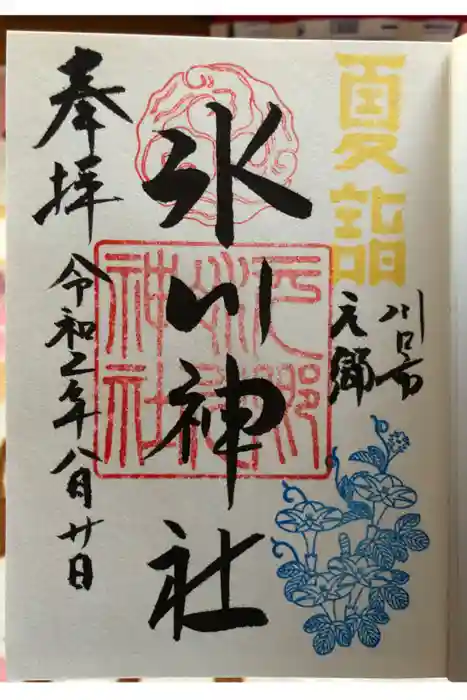 夏詣
川口市
元郷
氷川神社
元郷氷川神社
奉拝
令和乙年八月廿日